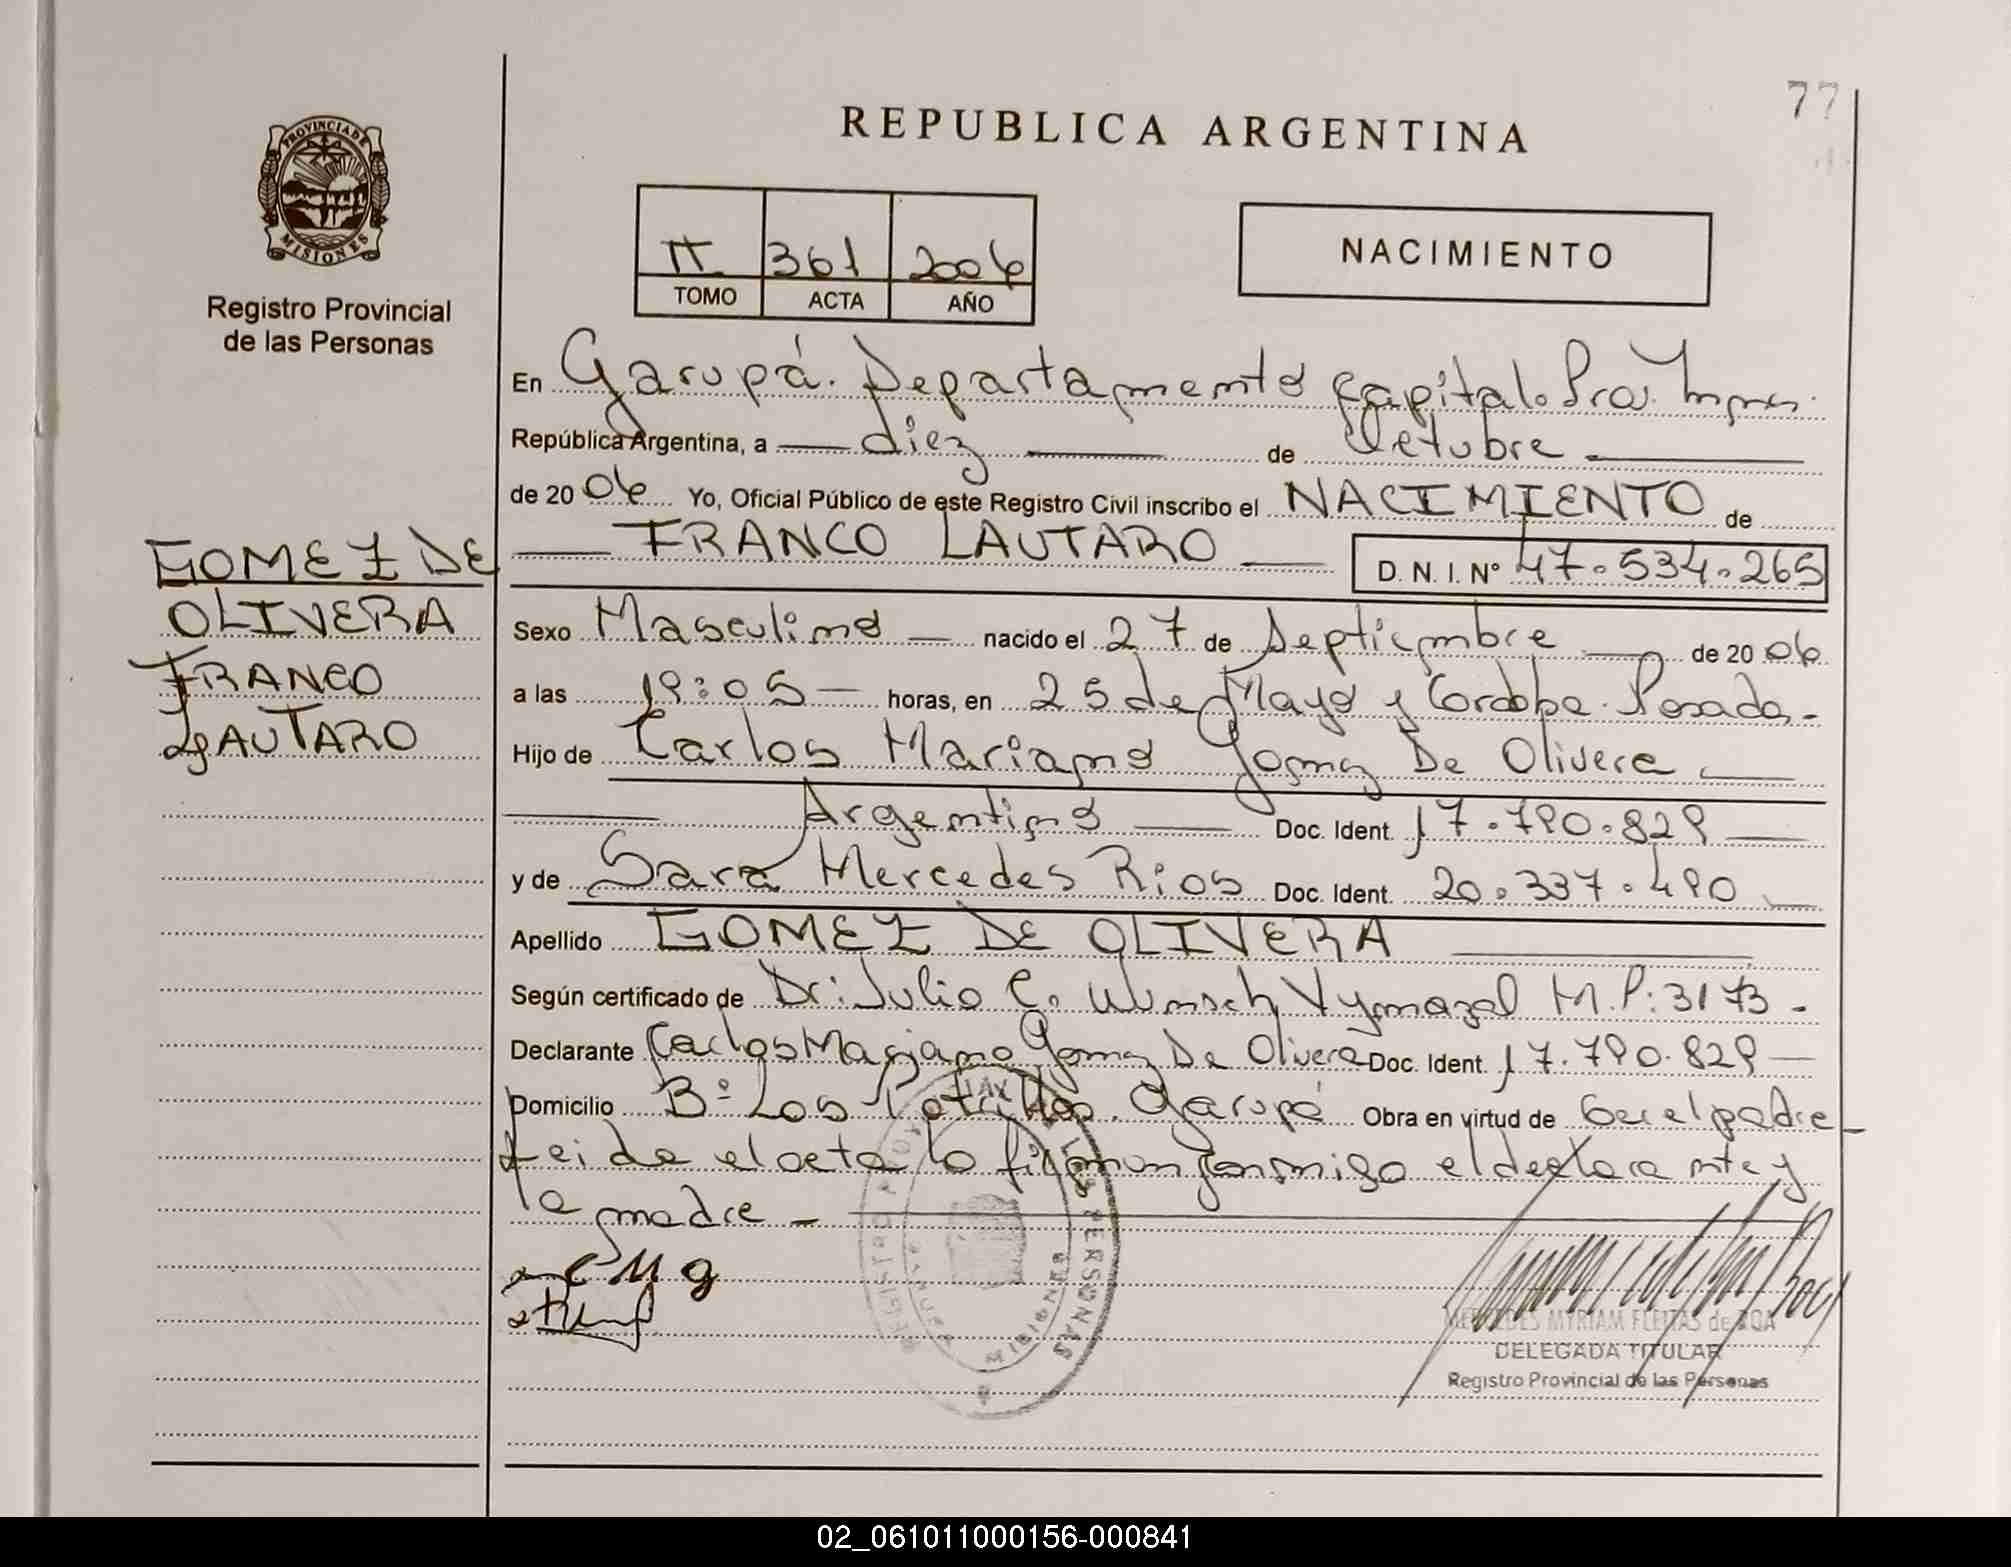 77
REPUBLICA ARGENTINA
PROVINCIA DE
MISIONES
Registro Provincial
de las Personas
II 361 2006
TOMO ACTA AÑO
NACIMIENTO
En Garupá. Departamento Capital. Prov.
República Argentina, a diez de Octubre
de 20 06 Yo, Oficial Público de este Registro Civil inscribo el NACIMIENTO de
FRANCO LAUTARO D. N. I. N° 47.534.265
GOMEZ DE
OLIVERA
FRANCO
LAUTARO
Sexo Masculino nacido el 27 de Septiembre de 20 06
a las 19:05 horas, en 25 de Mayo y Cordoba. Posadas
Hijo de Carlos Mariano Gomez De Olivera
Argentino Doc. Ident. 17.790.829
y de Sara Mercedes Rios Doc. Ident. 20.337.490
Apellido GOMEZ DE OLIVERA
Según certificado de Dr: Julio C. Wunsch Vymazal M.P: 3173 -
Declarante Carlos Mariano Gomez De Olivera Doc. Ident. 17.790.829
Domicilio B° Los Potrillos. Garupá Obra en virtud de Ser el padre
Leida el acta la firman conmigo el declarante y
la madre
CMG
REGISTRO PROV. DE LAS PERSONAS
GARUPA
MISIONES
MERCEDES MYRIAM FLEITAS de ROA
DELEGADA TITULAR
Registro Provincial de las Personas
02_061011000156-000841